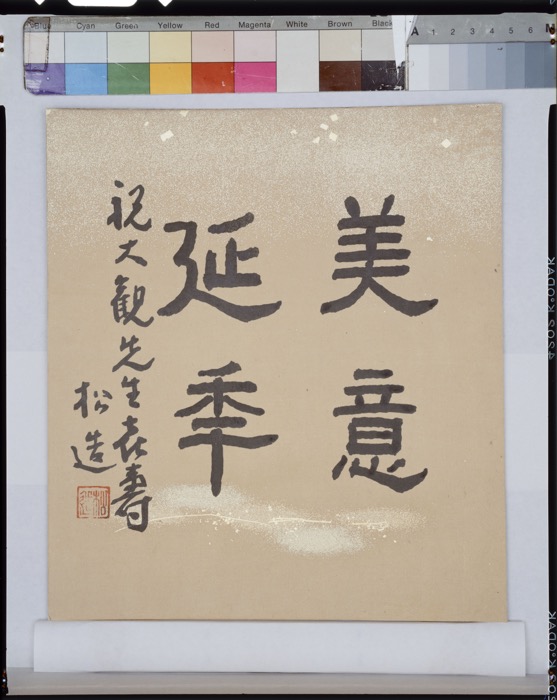 Blue Cyan Green Yellow Red Magenta White Brown Black
A 1 2 3 4 5 6 M
美意
延季
祝大観先生喜壽
松造
松造
KODAK
KODAK